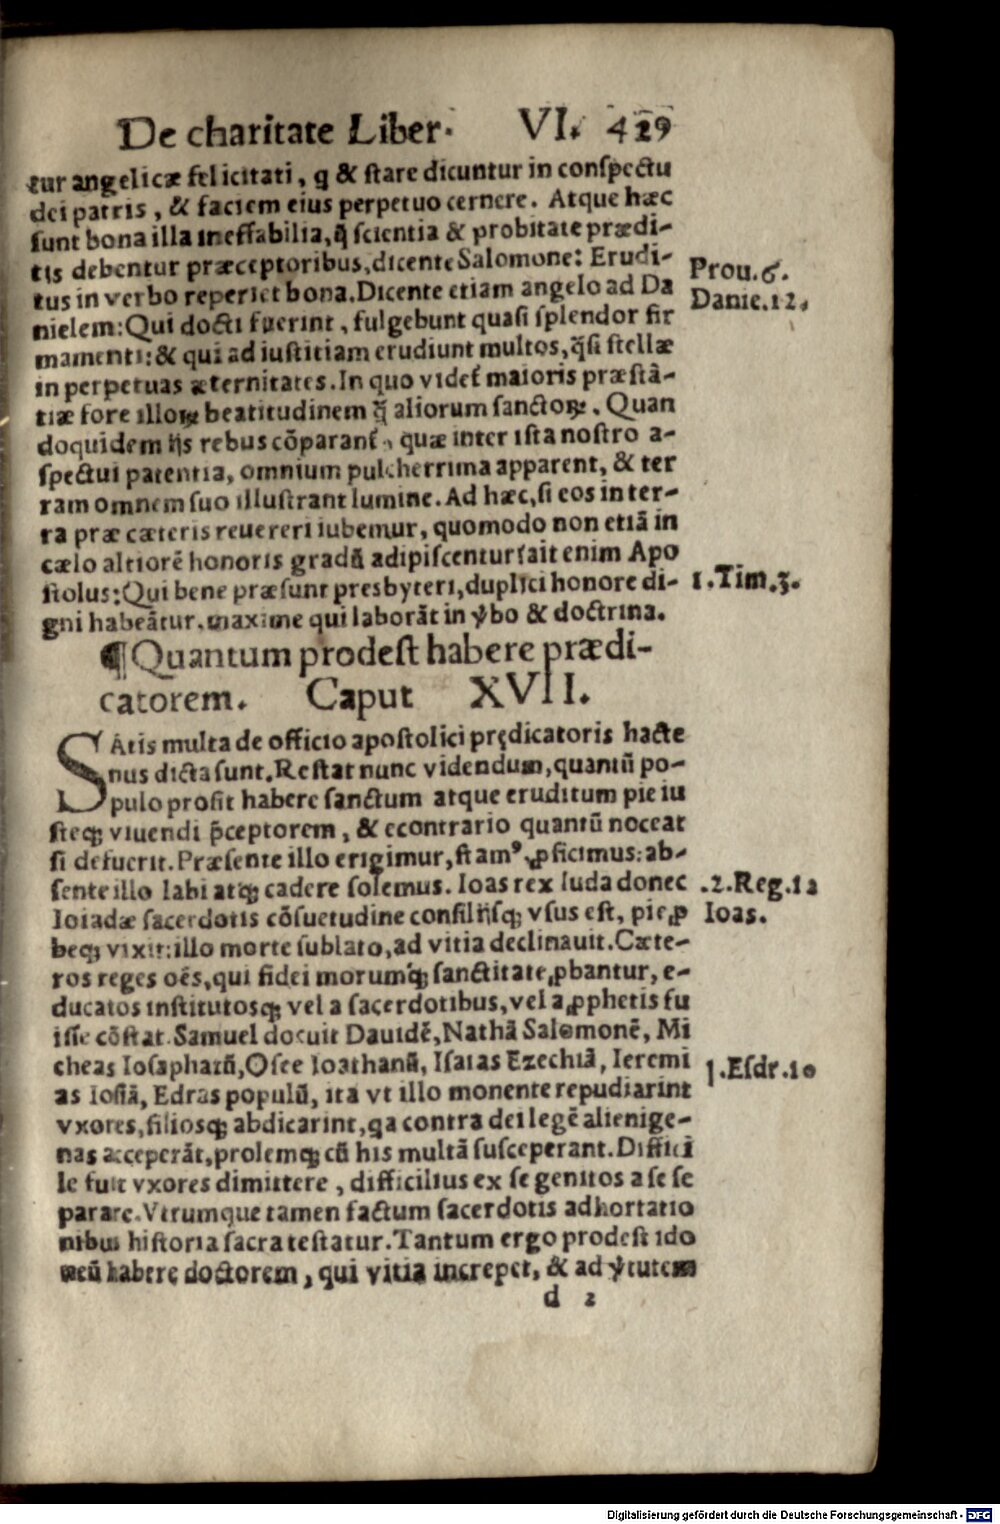 De charitate Liber. VI. 429
tur angelicæ felicitati, q & stare dicuntur in conspectu
dei patris, & faciem eius perpetuo cernere. Atque hæc
sunt bona illa ineffabilia, q̃ scientia & probitate prædi-
tis debentur præceptoribus, dicente Salomone: Erudi-
tus in verbo reperiet bona. Dicente etiam angelo ad Da
nielem: Qui docti fuerint, fulgebunt quasi splendor fir
mamenti: & qui ad iustitiam erudiunt multos, q̃si stellæ
in perpetuas æternitates. In quo videt᷑ maioris præstã-
tiæ fore illoꝝ beatitudinem q̃ aliorum sanctoꝝ. Quan
doquidem ijs rebus cõparant᷑, quæ inter ista nostro a-
spectui patentia, omnium pulcherrima apparent, & ter
ram omnem suo illustrant lumine. Ad hæc, si eos in ter-
ra præ cæteris reuereri iubemur, quomodo non etiã in
cælo altiorẽ honoris gradũ adipiscentur? ait enim Apo
stolus: Qui bene præsunt presbyteri, duplici honore di-
gni habeãtur. maxime qui laborãt in ṽbo & doctrina.
Prou. 6.
Danie. 12.
1. Tim. 3.
¶ Quantum prodest habere prædi-
catorem. Caput XVII.
SAtis multa de officio apostolici prędicatoris hacte
nus dicta sunt. Restat nunc videndum, quantũ po-
pulo prosit habere sanctum atque eruditum pie iu
steqꝫ viuendi p̃ceptorem, & econtrario quantũ noceat
si defuerit. Præsente illo erigimur, stamꝰ, ꝓficimus: ab-
sente illo labi atqꝫ cadere solemus. Ioas rex Iuda donec
Ioiadæ sacerdotis cõsuetudine consilijsqꝫ vsus est, pie ꝓ
beqꝫ vixit: illo morte sublato, ad vitia declinauit. Cæte-
ros reges oẽs, qui fidei morumqꝫ sanctitate ꝓbantur, e-
ducatos institutosqꝫ vel a sacerdotibus, vel a ꝓphetis fu
isse cõstat. Samuel docuit Dauidẽ, Nathã Salomonẽ, Mi
cheas Iosaphatũ, Osee Ioathanũ, Isaias Ezechiã, Ieremi
as Iosiã, Edras populũ, ita vt illo monente repudiarint
vxores, filiosqꝫ abdicarint, qa contra dei legẽ alienige-
nas acceperãt, prolemqꝫ cũ his multã susceperant. Diffici
le fuit vxores dimittere, difficilius ex se genitos a se se
parare. Vtrumque tamen factum sacerdotis adhortatio
nibus historia sacra testatur. Tantum ergo prodest ido
neũ habere doctorem, qui vitia increpet, & ad ṽtutem
.2. Reg. 12
Ioas.
1. Esdr. 10
d 2
Digitalisierung gefördert durch die Deutsche Forschungsgemeinschaft - DFG